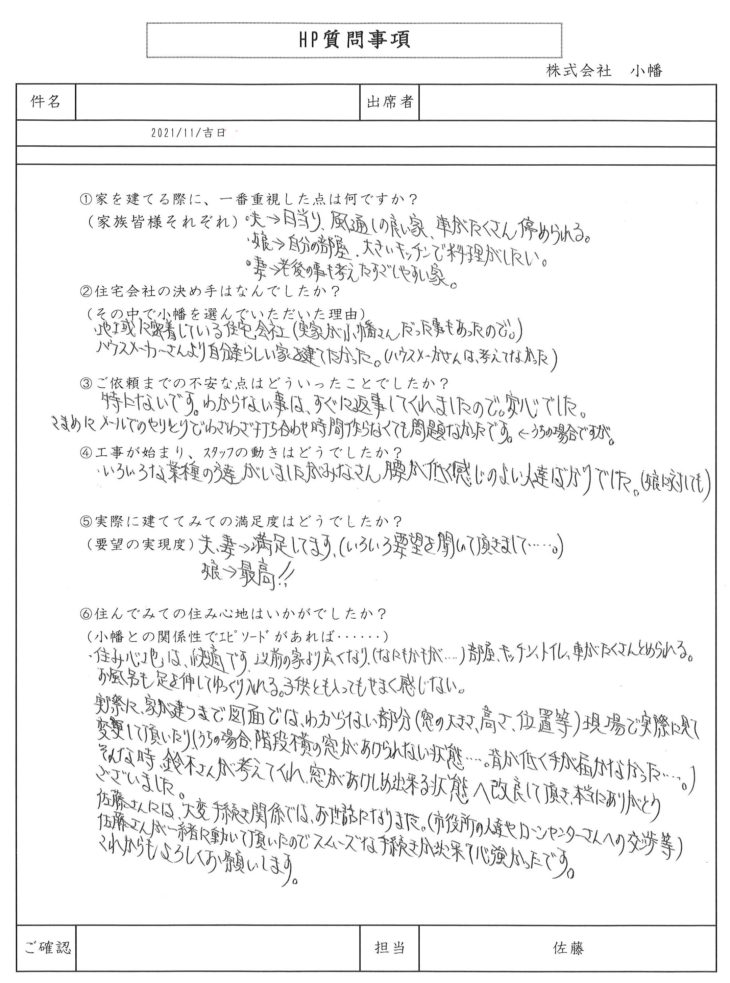 HP質問事項
株式会社　小幡
件名
出席者
2021/11/吉日
①家を建てる際に、一番重視した点は何ですか？
(家族皆様それぞれ) ・夫→日当り、風通しの良い家、車がたくさん停められる。
・娘→自分の部屋、大きいキッチンで料理がしたい。
・妻→老後の事も考えたすごしやすい家。
②住宅会社の決め手はなんでしたか？
(その中で小幡を選んでいただいた理由)
・地域に密着している住宅会社(実家が小幡さんだった事もあったので。)
ハウスメーカーさんより自分達らしい家を建てたかった。(ハウスメーカーさんは、考えてなかった)
③ご依頼までの不安な点はどういったことでしたか？
特にないです。わからない事は、すぐに返事してくれましたので。安心でした。
こまめにメールでのやりとりでわざわざ打ち合わせ時間作らなくても問題なかったです。←うちの場合ですが。
④工事が始まり、ｽﾀｯﾌの動きはどうでしたか？
・いろいろな業種の方達がいましたがみなさん腰が低く感じのよい人達ばかりでした。(娘に対しても)
⑤実際に建ててみての満足度はどうでしたか？
(要望の実現度) 夫、妻→満足してます、(いろいろ要望を聞いて頂きまして……。)
娘→最高!!
⑥住んでみての住み心地はいかがでしたか？
(小幡との関係性でｴﾋﾟｿｰﾄﾞがあれば……)
・住み心地は、快適です、以前の家より広くなり、(なにもかもが…) 部屋、キッチン、トイレ、車がたくさんとめられる。
お風呂も足を伸してゆっくり入れる。子供とも入ってもせまく感じない。
実際に、家が建つまで図面では、わからない部分(窓の大きさ、高さ、位置等)現場で実際に見て
変更して頂いたり(うちの場合、階段横の窓があけられない状態…。背が低く手が届かなかった…。)
そんな時、鈴木さんが考えてくれ、窓があけしめ出来る状態へ改良して頂き、本当にありがとう
ございました。
佐藤さんには、大変手続き関係では、お世話になりました。(市役所の人達やローンセンターさんへの交渉等)
佐藤さんが一緒に動いて頂いたのでスムーズな手続きが出来て心強かったです。
これからもよろしくお願いします。
ご確認
担当
佐藤